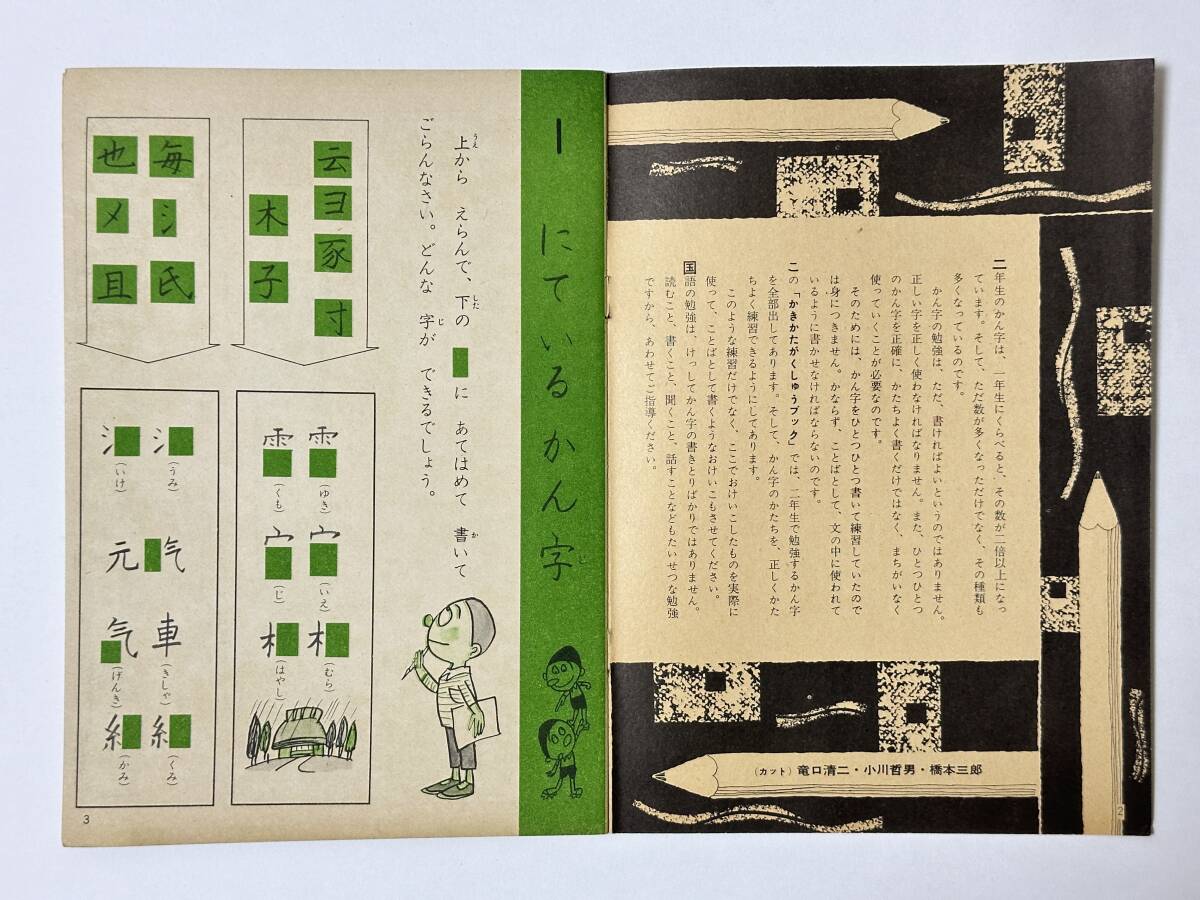 二年生のかん字は、一年生にくらべると、その数が二倍以上になっ
ています。そして、ただ数が多くなっただけでなく、その種類も
多くなっているのです。
かん字の勉強は、ただ、書ければよいというのではありません。
正しい字を正しく使わなければなりません。また、ひとつひとつ
のかん字を正確に、かたちよく書くだけではなく、まちがいなく
使っていくことが必要なのです。
そのためには、かん字をひとつひとつ書いて練習していたので
は身につきません。かならず、ことばとして、文の中に使われて
いるように書かせなければならないのです。
この「かきかたがくしゅうブック」では、二年生で勉強するかん字
を全部出してあります。そして、かん字のかたちを、正しくかた
ちよく練習できるようにしてあります。
このような練習だけでなく、ここでおけいこしたものを実際に
使って、ことばとして書くようなおけいこもさせてください。
国語の勉強は、けっしてかん字の書きとりばかりではありません。
読むこと、書くこと、聞くこと、話すことなどもたいせつな勉強
ですから、あわせてご指導ください。
(カット) 竜口清二・小川哲男・橋本三郎
2
1 にているかん字
じ
上から えらんで、下の に あてはめて 書いて
うえ
した
か
ごらんなさい。どんな 字が できるでしょう。
じ
云 ヨ 豕 寸
木 子
雨 (ゆき) 宀 (いえ) 木 (むら)
雨 (くも) 宀 (じ) 木 (はやし)
毎 氵 氏
也 メ 且
氵 (うみ) 气 車 (きしゃ) 糸 (くみ)
氵 (いけ) 元 气 (げんき) 糸 (かみ)
3